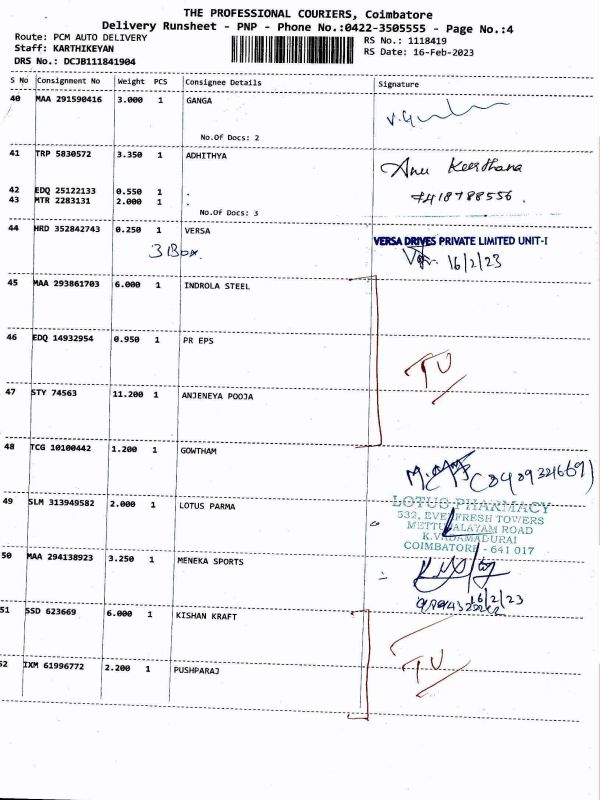 THE PROFESSIONAL COURIERS, Coimbatore
Delivery Runsheet - PNP - Phone No.:0422-3505555 - Page No.:4
Route: PCM AUTO DELIVERY
RS No.: 1118419
Staff: KARTHIKEYAN
RS Date: 16-Feb-2023
DRS No.: DCJB111841904
S No Consignment No Weight PCS Consignee Details Signature
40 MAA 291590416 3.000 1 GANGA
No.Of Docs: 2
41 TRP 5830572 3.350 1 ADHITHYA
Anu Keerthana
42 EDQ 25122133 0.550 1 .
7418788556.
43 MTR 2283131 2.000 1 .
No.Of Docs: 3
44 HRD 352842743 0.250 1 VERSA
VERSA DRIVES PRIVATE LIMITED UNIT-I
3 Box.
16/2/23
45 MAA 293861703 6.000 1 INDROLA STEEL
46 EDQ 14932954 0.950 1 PR EPS
TU
47 STY 74563 11.200 1 ANJENEYA POOJA
48 TCG 10100442 1.200 1 GOWTHAM
49 SLM 313949582 2.000 1 LOTUS PARMA
LOTUS PHARMACY
532, EVERFRESH TOWERS
METTUPALAYAM ROAD
K.VADAMADURAI
COIMBATORE - 641 017
50 MAA 294138923 3.250 1 MENEKA SPORTS
16/2/23
51 SSD 623669 6.000 1 KISHAN KRAFT
TU
52 IXM 61996772 2.200 1 PUSHPARAJ